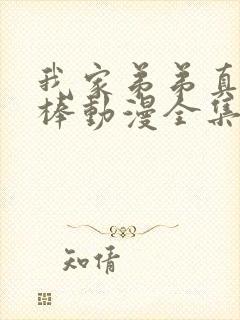 我家弟弟真
棒動漫全集
知情